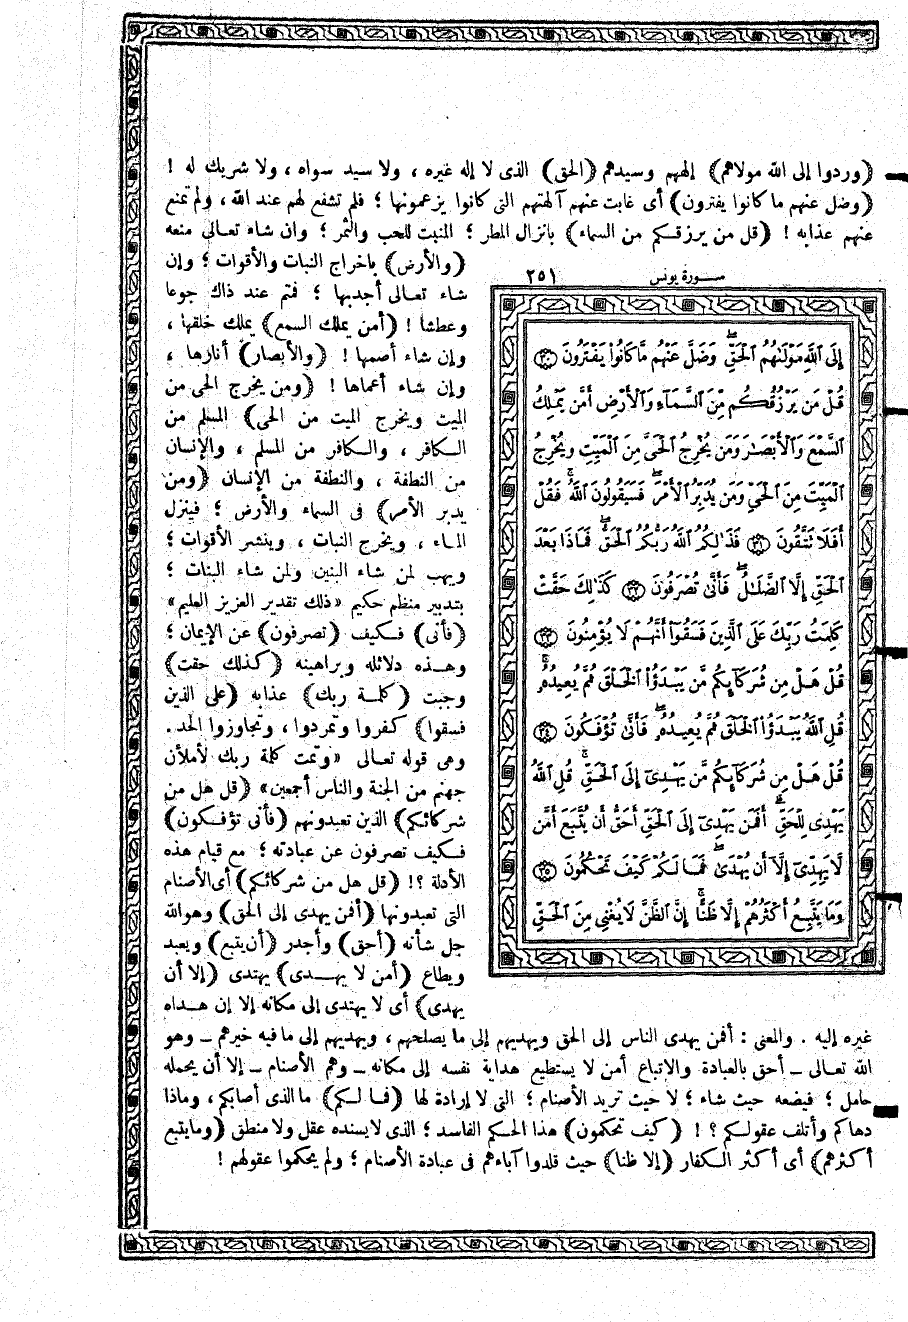 (وردوا إلى الله مولاهم) إلههم وسيدهم (الحق) الذى لا إله غيره ، ولا سيد سواه ، ولا شريك له !
(وضل عنهم ما كانوا يفترون) أى غابت عنهم آلهتهم التى كانوا يزعمونها ؛ فلم تشفع لهم عند الله ، ولم تمنع
عنهم عذابه ! (قل من يرزقكم من السماء) بانزال المطر ؛ المنبت للحب والثمر ؛ وإن شاء تعالى منعه
(والأرض) باخراج النبات والأقوات ؛ وإن
شاء تعالى أجدبها ؛ فتم عند ذاك جوعا
وعطشا ! (أمن يملك السمع) يملك خلقها ،
وإن شاء أصمها ! (والأبصار) أنارها ،
وإن شاء أعماها ! (ومن يخرج الحى من
الميت ويخرج الميت من الحى) المسلم من
الكافر ، والكافر من المسلم ، والإنسان
من النطفة ، والنطفة من الإنسان (ومن
يدبر الأمر) فى السماء والأرض ؛ فينزل
الماء ، ويخرج النبات ، وينشر الأقوات ؛
ويهب لمن شاء البنين ولمن شاء البنات ؛
بتدبير منظم حكيم «ذلك تقدير العزيز العليم»
(فأنى) فكيف (تصرفون) عن الإيمان ؛
وهذه دلائله وبراهينه (كذلك حقت)
وجبت (كلمة ربك) عذابه (على الذين
فسقوا) كفروا وتمردوا ، وتجاوزوا الحد .
وهى قوله تعالى «وتمت كلمة ربك لأملأن
جهنم من الجنة والناس أجمعين» (قل هل من
شركائكم) الذين تعبدونهم (فأنى تؤفكون)
فكيف تصرفون عن عبادته ؛ مع قيام هذه
الأدلة ؟! (قل هل من شركائكم) أى الأصنام
التى تعبدونها (أفمن يهدى إلى الحق) وهو الله
جل شأنه (أحق) وأجدر (أن يتبع) ويعبد
ويطاع (أمن لا يهدى) يهتدى (إلا أن
يهدى) أى لا يهتدى إلى مكانه إلا إن هداه
سورة يونس ٢٥١
إِلَى ٱللَّهِ مَوْلَىٰهُمُ ٱلْحَقِّ ۖ وَضَلَّ عَنْهُم مَّا كَانُوا۟ يَفْتَرُونَ ٣٠
قُلْ مَن يَرْزُقُكُم مِّنَ ٱلسَّمَآءِ وَٱلْأَرْضِ أَمَّن يَمْلِكُ
ٱلسَّمْعَ وَٱلْأَبْصَـٰرَ وَمَن يُخْرِجُ ٱلْحَىَّ مِنَ ٱلْمَيِّتِ وَيُخْرِجُ
ٱلْمَيِّتَ مِنَ ٱلْحَىِّ وَمَن يُدَبِّرُ ٱلْأَمْرَ ۚ فَسَيَقُولُونَ ٱللَّهُ ۚ فَقُلْ
أَفَلَا تَتَّقُونَ ٣١ فَذَٰلِكُمُ ٱللَّهُ رَبُّكُمُ ٱلْحَقُّ ۖ فَمَاذَا بَعْدَ
ٱلْحَقِّ إِلَّا ٱلضَّلَـٰلُ ۖ فَأَنَّىٰ تُصْرَفُونَ ٣٢ كَذَٰلِكَ حَقَّتْ
كَلِمَتُ رَبِّكَ عَلَى ٱلَّذِينَ فَسَقُوٓا۟ أَنَّهُمْ لَا يُؤْمِنُونَ ٣٣
قُلْ هَلْ مِن شُرَكَآئِكُم مَّن يَبْدَؤُا۟ ٱلْخَلْقَ ثُمَّ يُعِيدُهُۥ ۚ
قُلِ ٱللَّهُ يَبْدَؤُا۟ ٱلْخَلْقَ ثُمَّ يُعِيدُهُۥ ۖ فَأَنَّىٰ تُؤْفَكُونَ ٣٤
قُلْ هَلْ مِن شُرَكَآئِكُم مَّن يَهْدِىٓ إِلَى ٱلْحَقِّ ۚ قُلِ ٱللَّهُ
يَهْدِى لِلْحَقِّ ۗ أَفَمَن يَهْدِىٓ إِلَى ٱلْحَقِّ أَحَقُّ أَن يُتَّبَعَ أَمَّن
لَّا يَهِدِّىٓ إِلَّآ أَن يُهْدَىٰ ۖ فَمَا لَكُمْ كَيْفَ تَحْكُمُونَ ٣٥
وَمَا يَتَّبِعُ أَكْثَرُهُمْ إِلَّا ظَنًّا ۚ إِنَّ ٱلظَّنَّ لَا يُغْنِى مِنَ ٱلْحَقِّ
غيره إليه . والمعنى : أفمن يهدى الناس إلى الحق ويهديهم إلى ما يصلحهم ، ويهديهم إلى ما فيه خيرهم – وهو
الله تعالى – أحق بالعبادة والاتباع أمن لا يستطيع هداية نفسه إلى مكانه – وهم الأصنام – إلا أن يحمله
حامل ؛ فيضعه حيث شاء ؛ لا حيث تريد الأصنام ؛ التى لا إرادة لها (فما لكم) ما الذى أصابكم ، وماذا
دهاكم وأتلف عقولكم ؟ ! (كيف تحكمون) هذا الحكم الفاسد ؛ الذى لا يسنده عقل ولا منطق (وما يتبع
أكثرهم) أى أكثر الكفار (إلا ظنا) حيث قلدوا آباءهم فى عبادة الأصنام ؛ ولم يحكموا عقولهم !